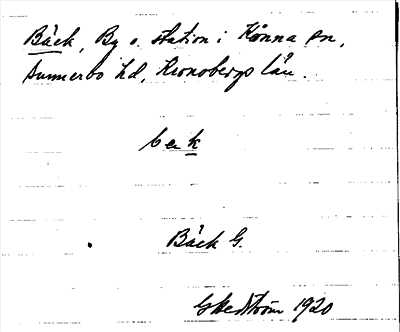 Bäck, By o. station i Hånna sn,
Sunnerbo hd, Kronobergs län.
be k
Bäck G.
G Hedström 1920